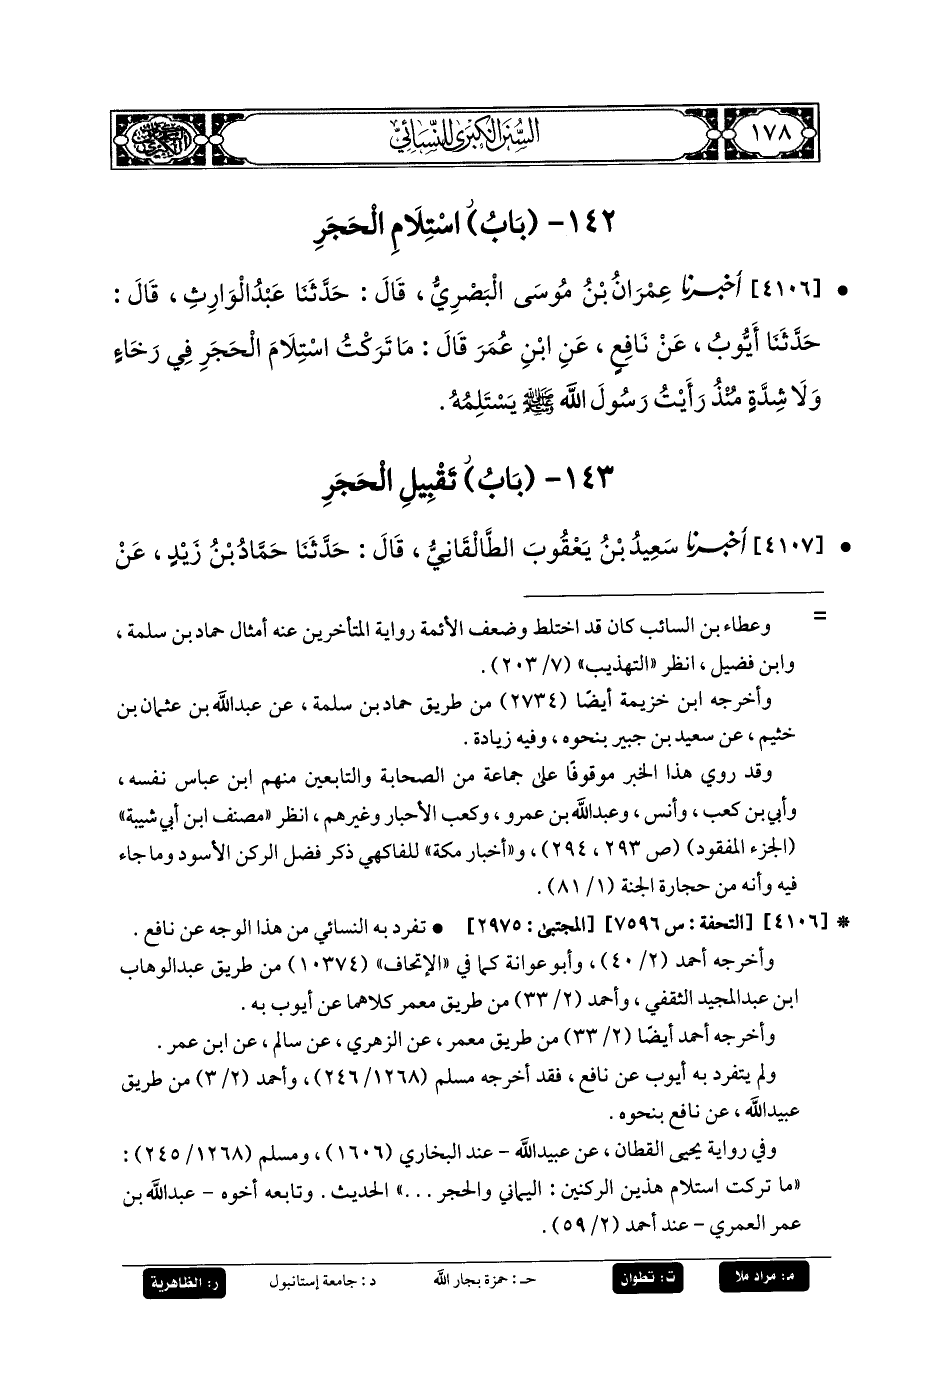 ١٧٨
السنن الكبرى للنسائي
١٤٢- (بَابُ) اسْتِلَامِ الْحَجَرِ
• [٤١٠٦] أخبرنا عِمْرَانُ بْنُ مُوسَى الْبَصْرِيُّ ، قَالَ : حَدَّثَنَا عَبْدُ الْوَارِثِ ، قَالَ :
حَدَّثَنَا أَيُّوبُ ، عَنْ نَافِعٍ ، عَنِ ابْنِ عُمَرَ قَالَ : مَا تَرَكْتُ اسْتِلَامَ الْحَجَرِ فِي رَخَاءٍ
وَلَا شِدَّةٍ مُنْذُ رَأَيْتُ رَسُولَ اللَّه ﷺ يَسْتَلِمُهُ .
١٤٣- (بَابُ) تَقْبِيلِ الْحَجَرِ
• [٤١٠٧] أخبرنا سَعِيدُ بْنُ يَعْقُوبَ الطَّالْقَانِيُّ ، قَالَ : حَدَّثَنَا حَمَّادُ بْنُ زَيْدٍ ، عَنْ
= وعطاء بن السائب كان قد اختلط وضعف الأئمة رواية المتأخرين عنه أمثال حماد بن سلمة ،
وابن فضيل ، انظر «التهذيب» (٧/ ٢٠٣) .
وأخرجه ابن خزيمة أيضًا (٢٧٣٤) من طريق حماد بن سلمة ، عن عبدالله بن عثمان بن
خثيم ، عن سعيد بن جبير بنحوه ، وفيه زيادة .
وقد روي هذا الخبر موقوفًا على جماعة من الصحابة والتابعين منهم ابن عباس نفسه ،
وأبي بن كعب ، وأنس ، وعبدالله بن عمرو ، وكعب الأحبار وغيرهم ، انظر «مصنف ابن أبي شيبة»
(الجزء المفقود) (ص ٢٩٣ ، ٢٩٤) ، و«أخبار مكة» للفاكهي ذكر فضل الركن الأسود وما جاء
فيه وأنه من حجارة الجنة (١/ ٨١) .
* [٤١٠٦] [التحفة : س ٧٥٩٦] [المجتبى : ٢٩٧٥] • تفرد به النسائي من هذا الوجه عن نافع .
وأخرجه أحمد (٢/ ٤٠) ، وأبو عوانة كما في «الإتحاف» (١٠٣٧٤) من طريق عبدالوهاب
ابن عبدالمجيد الثقفي ، وأحمد (٢/ ٣٣) من طريق معمر كلاهما عن أيوب به .
وأخرجه أحمد أيضًا (٢/ ٣٣) من طريق معمر ، عن الزهري ، عن سالم ، عن ابن عمر .
ولم يتفرد به أيوب عن نافع ، فقد أخرجه مسلم (١٢٦٨/ ٢٤٦) ، وأحمد (٢/ ٣) من طريق
عبيدالله ، عن نافع بنحوه .
وفي رواية يحيى القطان ، عن عبيدالله - عند البخاري (١٦٠٦) ، ومسلم (١٢٦٨/ ٢٤٥) :
«ما تركت استلام هذين الركنين : اليماني والحجر ...» الحديث . وتابعه أخوه - عبدالله بن
عمر العمري - عند أحمد (٢/ ٥٩) .
مـ: مراد ملا ت: تطوان حـ: حمزة بجار الله د: جامعة إستانبول ر: الظاهرية